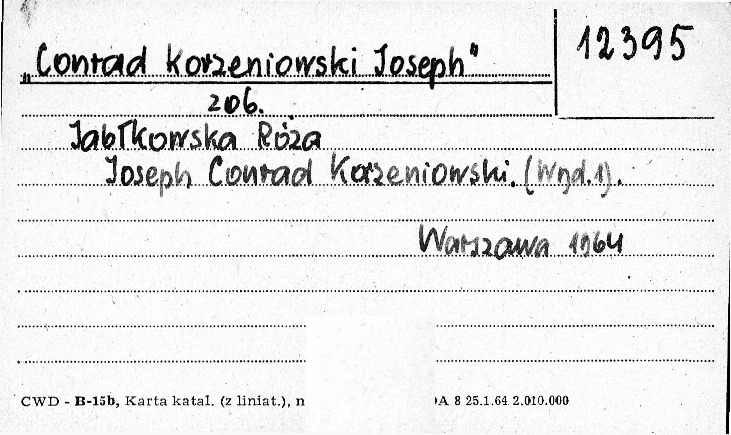 12395
„Conrad Korzeniowski Joseph"
206.
Jabłkowska Róża
Joseph Conrad Korzeniowski. (Wyd.1).
Warszawa 1964
CWD - B-15b, Karta katal. (z liniat.), n
A 8 25.1.64 2.010.000